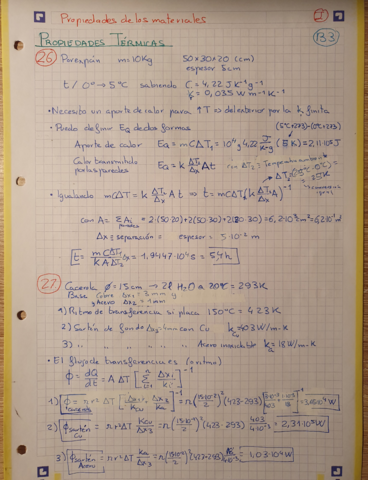 Propiedades de los materiales
I
PROPIEDADES TÉRMICAS
B3
26) Porexpán m=10Kg 50×30×20 (cm)
espesor 5cm
t / 0° → 5°C sabiendo C = 4,22 J K⁻¹g⁻¹
k = 0,035 W m⁻¹K⁻¹
• Necesito un aporte de calor para ↑T → del exterior por la k finita
• Puedo definir EQ de dos formas
(5°C+273)-(0°C+273)
Aporte de calor EQ = mCΔT₁ = 10⁴g 4,22 J/K·g (5K) = 2,11·10⁵J
Calor transmitido por las paredes EQ = k ΔT₂/Δx At
• Igualando mCΔT = k ΔT₂/Δx A t ⇒ t = mCΔT₁(k ΔT₂/Δx A)⁻¹
con A = Σ Ai paredes = 2·(50·20)+2(50·30)+2(20·30) = 6,2·10³cm² = 6,2·10⁻¹m²
Δx = separación = espesor = 5·10⁻² m
t = mCΔT₁/kAΔT₂ Δx = 1,9447·10⁴s = 5,4h
27) Cacerola ∅=15cm → 2l H₂O a 20°C = 293K
Base Cobre Δx₁ = 3mm y
Acero Δx₂ = 1mm
1) Ritmo de transferencia si placa 150°C = 423K
2) Sartén de fondo Δx₃=4mm con Cu kc=403 W/m·K
3) " " " " " Acero inoxidable ka = 18 W/m·K
• El flujo de transferencia es (o ritmo)
Φ = dQ/dt = A ΔT [Σ Δxi/ki]⁻¹
1) Φcacerola = π r² ΔT [Δx₁/kCu + Δx₂/ka]⁻¹
2) Φsartén Cu = π r² ΔT kCu/Δx₃ = π(15·10⁻²/2)²(423-293) 403/4·10⁻³ = 2,31·10⁵W
3) Φsartén Acero = π r² ΔT ka/Δx₃ = π(15·10⁻²/2)²(423-293) 18/4·10⁻³ = 1,03·10⁴W